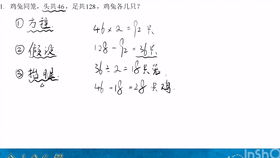 1. 鸡兔同笼，头共46，足共128，鸡兔各几只？
① 方程
46 × 2 = 92 只
② 假设
128 - 92 = 36 只
③ 抬腿
36 ÷ 2 = 18 只兔
46 - 18 = 28 只鸡
InShot